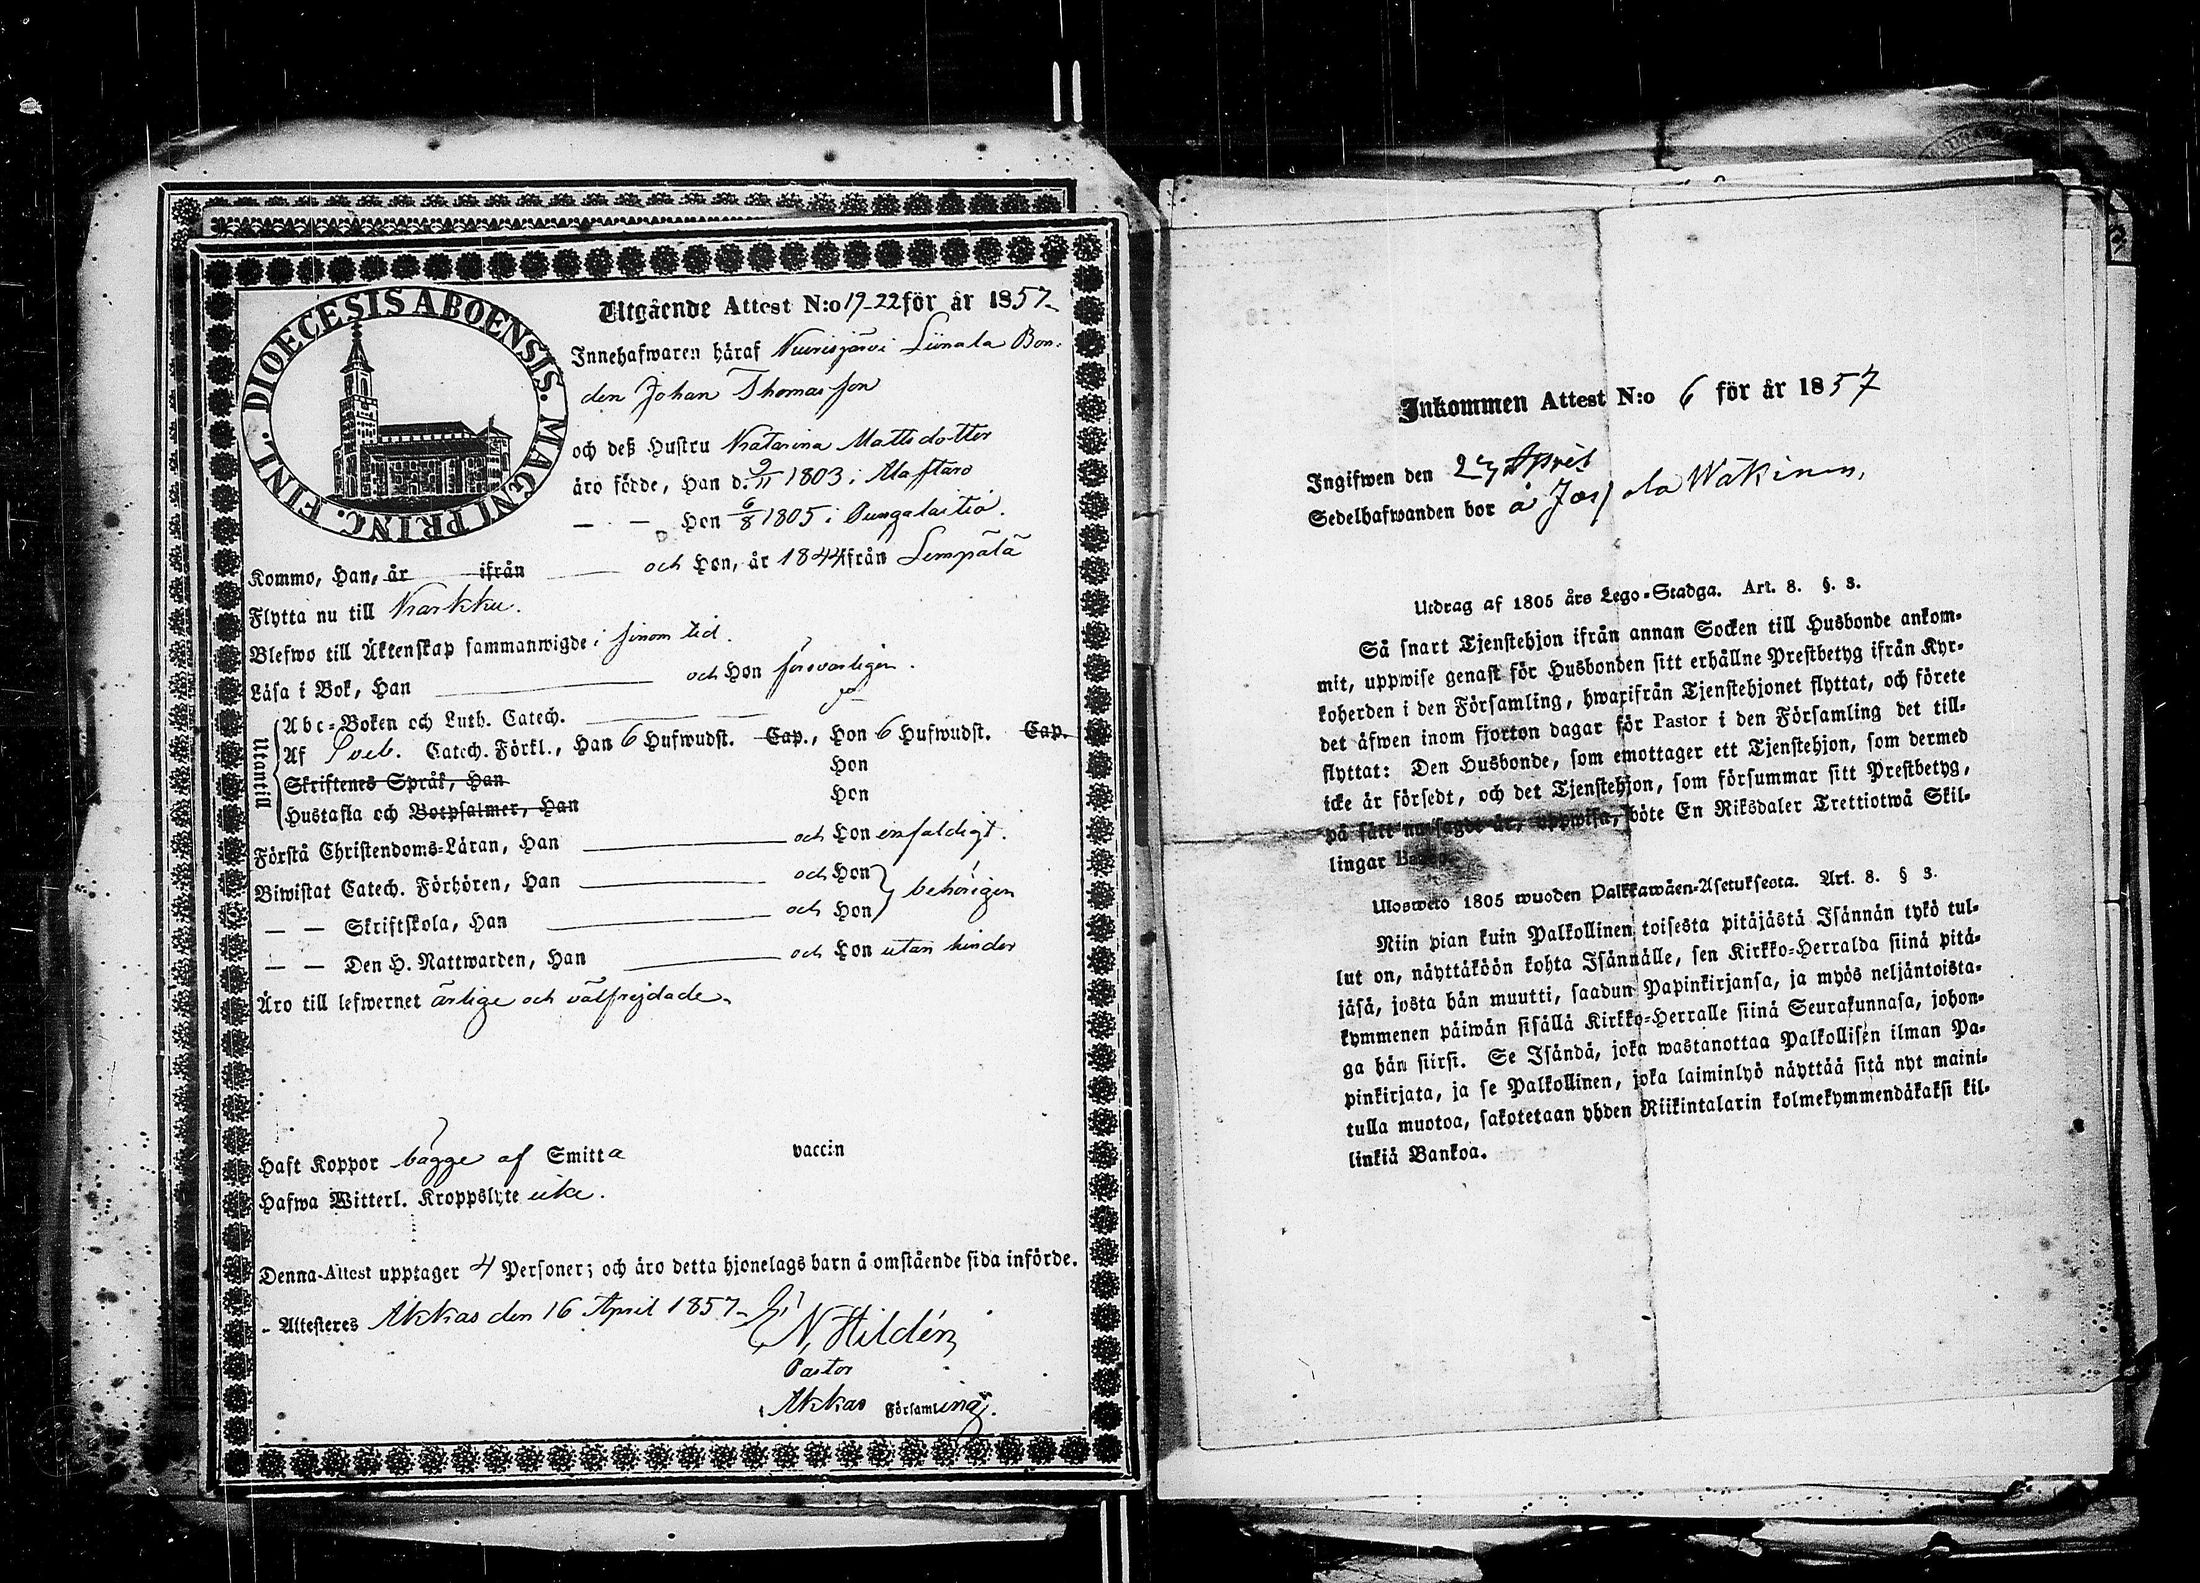 DIOECESIS ABOENSIS. MAGNI PRINC. FINL.
Utgående Attest N:o 19-22 för år 1857
Innehafwaren häraf Nuurisjärvi Liinala Bon-
den Johan Thomasson
och deß Hustru Katarina Mattsdotter
äro födde, Han d. 9/11 1803 i Alastaro
— — Hon 6/8 1805 i Pungalaitio.
Kommo, Han, år ifrån och Hon, år 1844 ifrån Lempälä
Flytta nu till Karkku.
Blefwo till Äktenskap sammanwigde i sinom tid.
Läsa i Bok, Han och Hon försvarligen.
Utantill
Abc-Boken och Luth. Catech.
Af Sveb. Catech. Förkl., Han 6 Hufwudst. Cap., Hon 6 Hufwudst. Cap.
Skriftenes Språk, Han Hon
Hustafla och Botpsalmer, Han Hon
Förstå Christendoms-Läran, Han och Hon enfaldigt.
Biwistat Catech. Förhören, Han och Hon behörigen
— — Skriftskola, Han och Hon
— — Den H. Nattwarden, Han och Hon utan hinder
Äro till lefwernet ärlige och välfrejdade
Haft Koppor bägge af Smitta vaccin
Hafwa Witterl. Kroppslyte icke.
Denna Attest upptager 4 Personer; och äro detta hjonelags barn å omstående sida införde.
Attesteres Akkas den 16 April 1857
N. Hildén
Pastor
i Akkas Församling.
Inkommen Attest N:o 6 för år 1857
Ingifwen den 27 April
Sedelhafwanden bor å
Utdrag af 1805 års Lego-Stadga. Art. 8. §. 3.
Så snart Tjenstehjon ifrån annan Socken till Husbonde ankom-
mit, uppwise genast för Husbonden sitt erhållne Prestbetyg ifrån Kyr-
koherden i den Församling, hwarifrån Tjenstehjonet flyttat, och förete
det äfwen inom fjorton dagar för Pastor i den Församling det till-
flyttat: Den Husbonde, som emottager ett Tjenstehjon, som dermed
icke är försedt, och det Tjenstehjon, som försummar sitt Prestbetyg,
på sätt nu sagdt är, uppwisa, böte En Riksdaler Trettiotwå Skil-
lingar Banco.
Uloswero 1805 wuoden Palkkawäen-Asetuksesta. Art. 8. § 3.
Niin pian kuin Palkollinen toisesta pitäjästä Isännän tykö tul-
lut on, näyttäköön kohta Isännälle, sen Kirkko-Herralda siinä pitä-
jäsä, josta hän muutti, saadun Papinkirjansa, ja myös neljäntoista-
kymmenen päiwän sisällä Kirkko-Herralle siinä Seurakunnasa, johon-
ga hän siirsi. Se Isändä, joka wastanottaa Palkollisen ilman Pa-
pinkirjata, ja se Palkollinen, joka laiminlyö näyttää sitä nyt maini-
tulla muotoa, sakotetaan yhden Riikintalarin kolmekymmendäkaksi kil-
linkiä Bankoa.